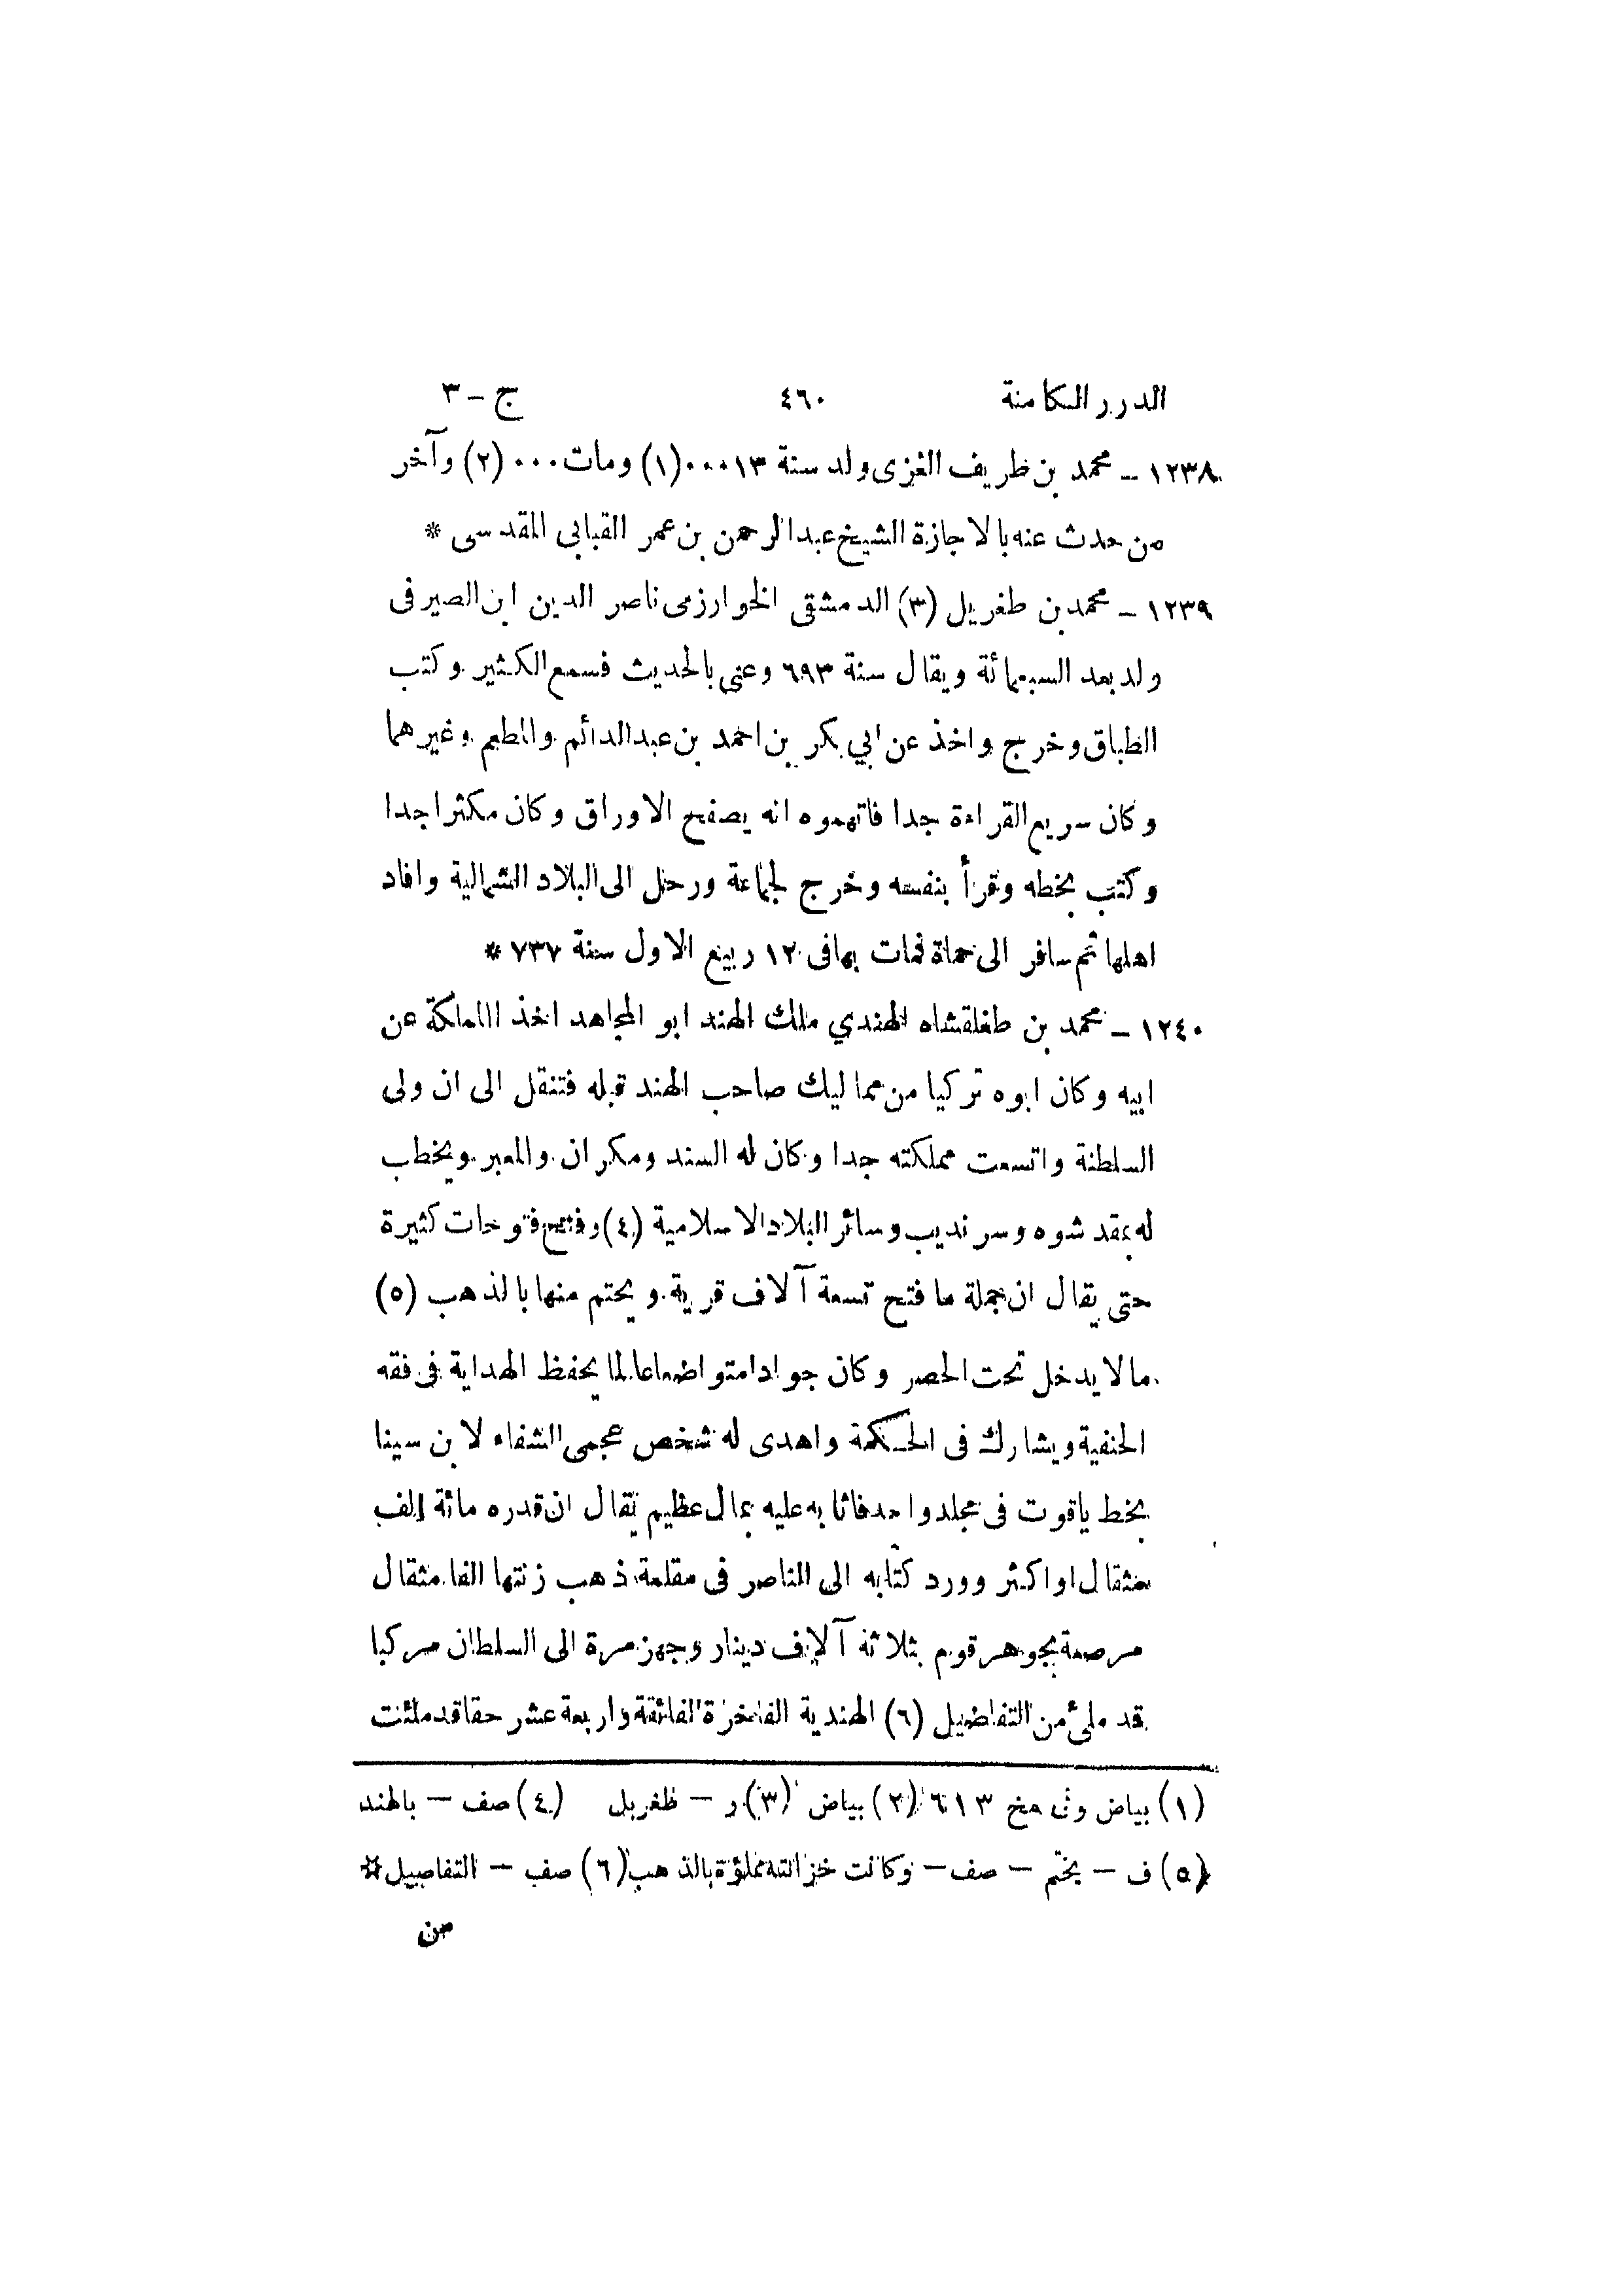 الدرر الكامنة ٤٦٠ ج – ٣
١٢٣٨ – محمد بن طريف الغزى ولد سنة ١٣٠٠٠(١) ومات ٠٠٠ (٢) وآخر
من حدث عنه بالاجازة الشيخ عبد الرحمن بن عمر القبابي المقدسى *
١٢٣٩ – محمد بن طغريل (٣) الدمشقى الخوارزمى ناصر الدين ابن الصيرفى
ولد بعد السبعمائة ويقال سنة ٦٩٣ وعنى بالحديث فسمع الكثير وكتب
الطباق وخرج واخذ عن ابي بكر بن احمد بن عبد الدائم والمطعم وغيرهما
وكان سريع القراءة جدا فاتهموه انه يصفح الاوراق وكان مكثرا جدا
وكتب بخطه وقرأ بنفسه وخرج لجماعة ورحل الى البلاد الشمالية وافاد
اهلها ثم سافر الى حماة فمات بها فى ١٢ ربيع الاول سنة ٧٣٧ *
١٢٤٠ – محمد بن طغلقشاه الهندي ملك الهند ابو المجاهد اخذ المملكة عن
ابيه وكان ابوه تركيا من مماليك صاحب الهند قبله فتنقل الى ان ولى
السلطنة واتسعت مملكته جدا وكان له السند ومكران والمعبر ويخطب
له بمقدشوه وسرنديب وسائر البلاد الاسلامية (٤) وفتح فتوحات كثيرة
حتى يقال ان جملة ما فتح تسعة آلاف قرية ويحتم منها بالذهب (٥)
مالا يدخل تحت الحصر وكان جوادا متواضعا لما يحفظ الهداية فى فقه
الحنفية ويشارك فى الحكمة واهدى له شخص عجمى الشفاء لابن سينا
بخط ياقوت فى مجلد واحد فاثابه عليه بمال عظيم يقال ان قدره مائة الف
مثقال او اكثر وورد كتابه الى الناصر فى مقلمة ذهب زنتها الفا مثقال
مرصعة بجوهر قوم بثلاثة آلاف دينار وجهز مرة الى السلطان مركبا
قد ملئ من التفاضيل (٦) الهندية الفاخرة الفائقة واربعة عشر حقا قد ملئت
(١) بياض وفى مخ ٦١٣ (٢) بياض (٣) ر – ظغريل (٤) صف – بالهند
(٥) ف – يختم – صف – وكانت خزائنه مملؤة بالذهب (٦) صف – التفاصيل *
من